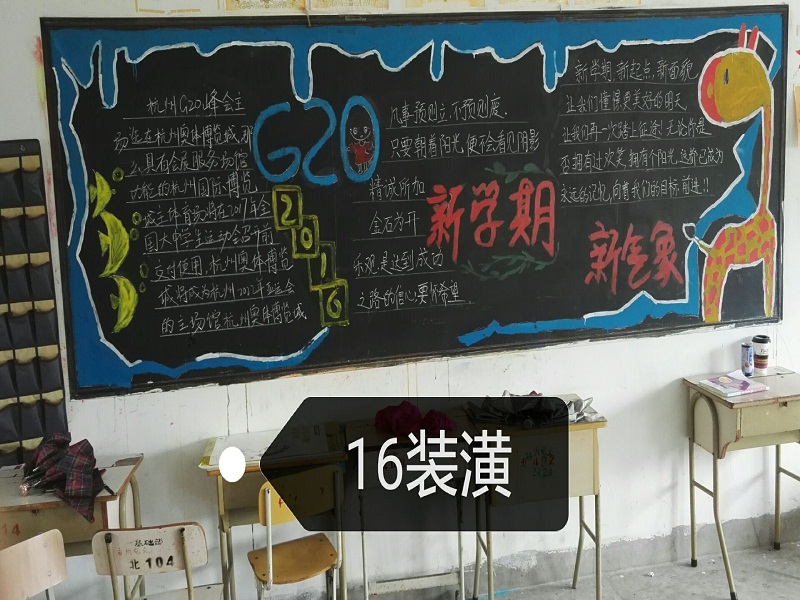 杭州G20峰会主
场选在杭州奥体博览城,那
么具有会展服务场馆
功能的杭州国际博览
城主体育场将在2017年全
国大中学生运动会召开前
交付使用,杭州奥体博览
城将成为杭州2022年亚运会
的主场馆杭州奥体博览城
G20
2016
凡事预则立,不预则废。
只要朝着阳光,便不会看见阴影
精诚所加
金石为开
乐观是达到成功
之路的信心,要怀希望
新学期
新学期,新起点,新面貌
让我们懂得更美好的明天
让我们再一次踏上征途!无论你是
否拥有过欢笑,拥有个阳光,这都已成为
永远的记忆,向着我们的目标,前进!!
新气象
16装潢
14
基础动
北 104